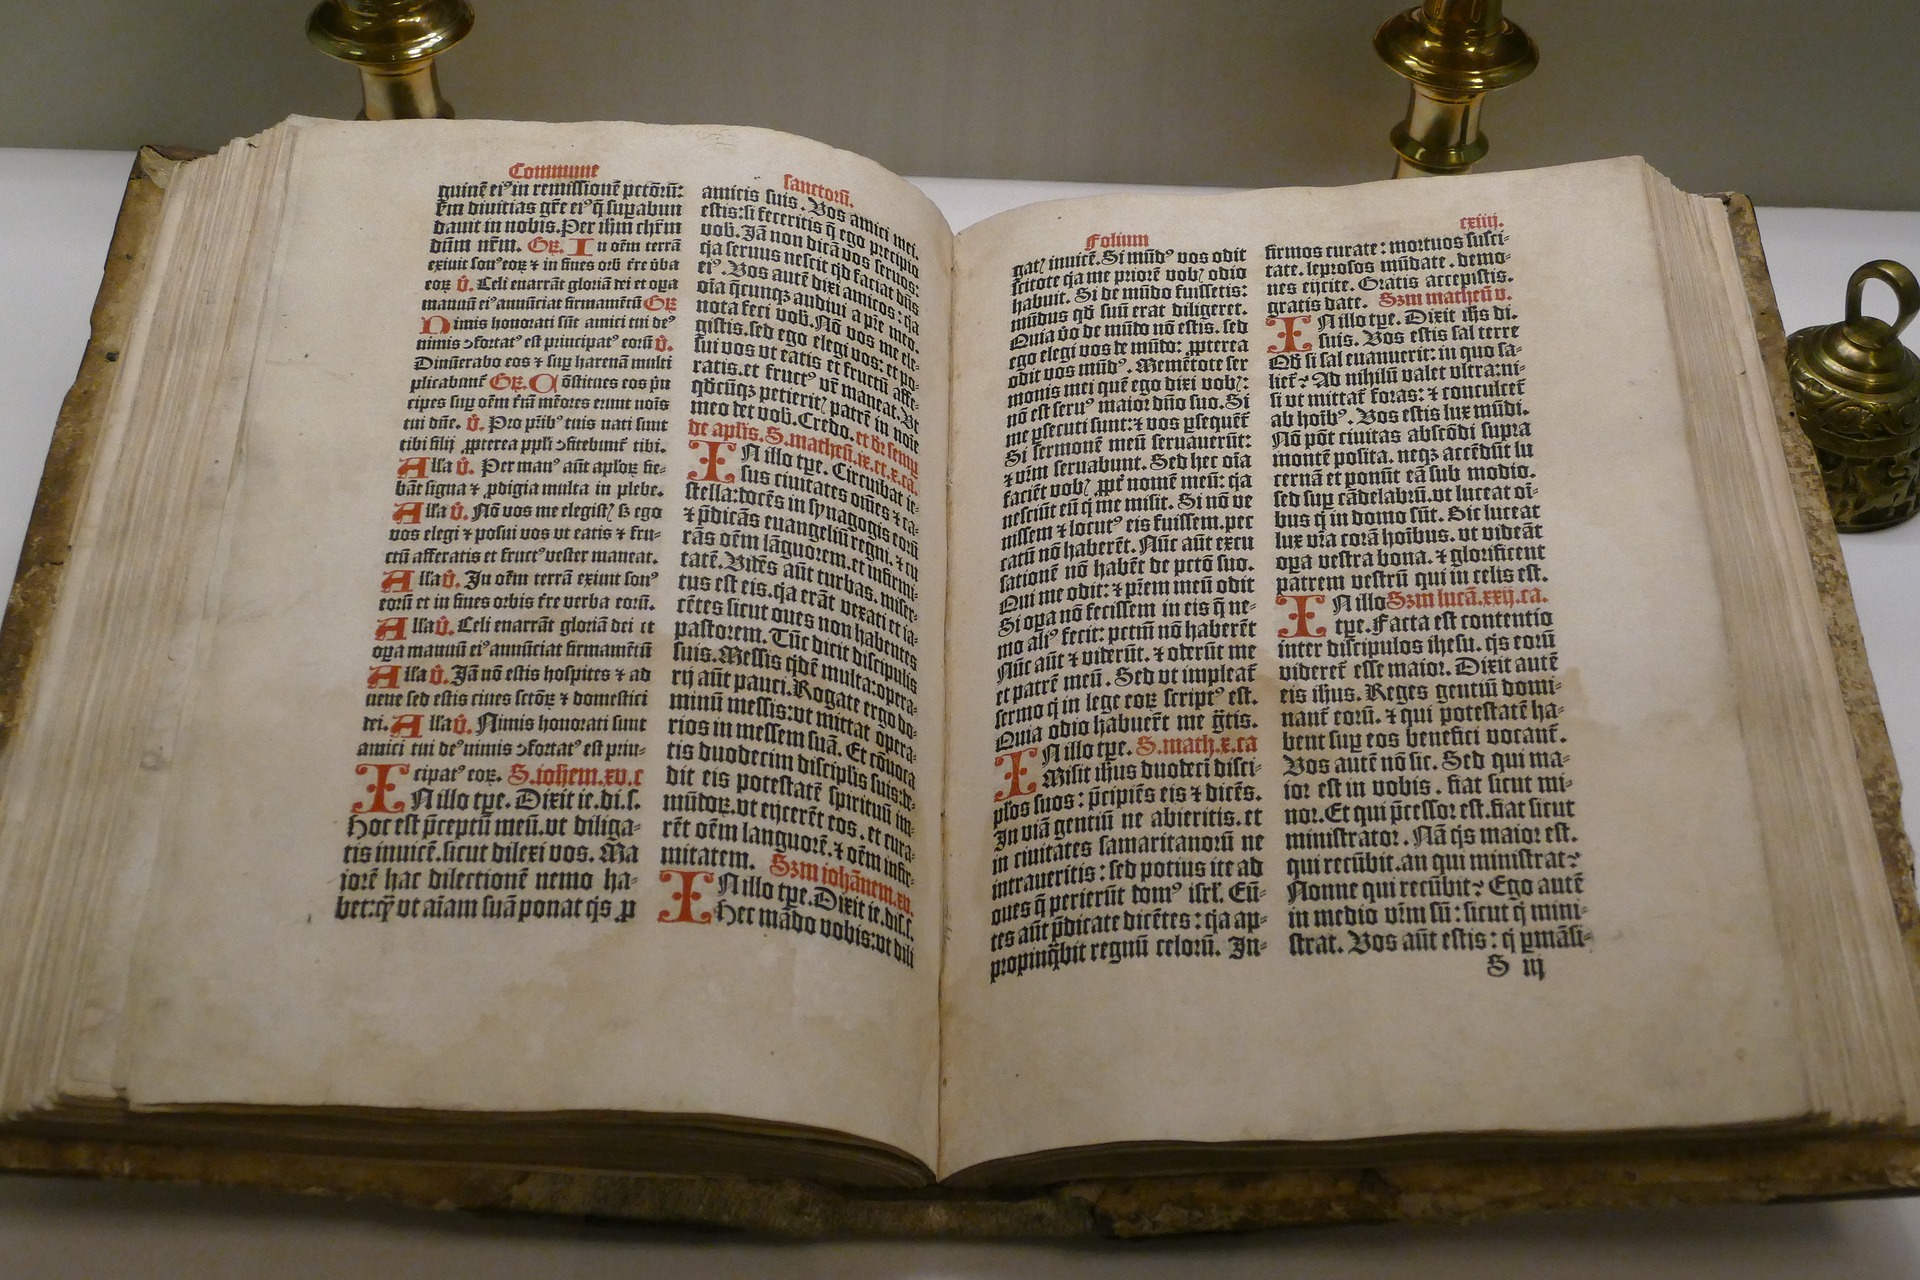 Commune
quinē ei⁹ in remissionē pctōrū:
Ꝑm diuitias grē ei⁹ q̄ supabun
dauit in nobis. Per ihm chrm
dūm nrm. Gr̄. In oēm terrā
exiuit son⁹ eoꝝ ⁊ in fines orb tre v̄ba
eoꝝ v̄. Celi enarrāt gloriā dei et oꝑa
manuū ei⁹ annūciat firmamētū Gr̄
Nimis honorati sūt amici tui de⁹
nimis ɔfortat⁹ est principat⁹ eorū v̄.
Dinūerabo eos ⁊ suꝑ harenā multi
plicabunt̄ Gr̄. Cōstitues eos pn̄
cipes suꝑ oēm trā mēores erunt nois
tui dn̄e. v̄. Pro pr̄ib⁹ tuis nati sunt
tibi filij ꝓpterea ppl̄i ɔfitebunt̄ tibi.
Alla v̄. Per man⁹ aūt aploꝝ fie-
bāt signa ⁊ ꝓdigia multa in plebe.
Alla v̄. Nō vos me elegistꝭ sꝫ ego
vos elegi ⁊ posui vos vt eatis ⁊ fru-
ctū afferatis et fruct⁹ vester maneat.
Alla v̄. In oēm terrā exiuit son⁹
eorū et in fines orbis tre verba eorū.
Alla v̄. Celi enarrāt gloriā dei et
oꝑa manuū ei⁹ annūciat firmamētū
Alla v̄. Jā nō estis hospites ⁊ ad
uene sed estis ciues sctōꝝ ⁊ domestici
dei. Alla v̄. Nimis honorati sunt
amici tui de⁹ nimis ɔfortat⁹ est prin-
cipat⁹ eoꝝ. S. iohem. xv. c
IN illo tꝑe. Dixit ie. di. s.
Hoc est p̄ceptū meū. vt diliga-
tis inuicē. sicut dilexi vos. Ma
iorē hac dilectionē nemo ha-
bet: qꝫ vt aīam suā ponat qs ꝓ
sanctorū.
amicis suis. Vos amici mei
estis: si feceritis q̄ ego precipio
vob. Jā non dicā vos seruos:
qa seruus nescit qd faciat dn̄s
ei⁹. Vos autē dixi amicos: qa
oīa q̄cunqꝫ audiui a pr̄e meo.
nota feci vob. Nō vos me ele-
gistis. sed ego elegi vos: et po-
sui vos vt eatis et fructū affe-
ratis. et fruct⁹ vr̄ maneat. Vt
qdcūqꝫ petieritꝭ patrē in noīe
meo det vob. Credo. et dr̄ semꝑ
de aplis. S. matheū. ix. et. x. ca.
IN illo tꝑe. Circuibat ie-
sus ciuitates om̄es ⁊ ca-
stella: docēs in synagogis eorū
⁊ p̄dicās euangeliū regni. ⁊ cu
rās oēm lāguorem. et infirmi-
tatē. Vidēs aūt turbas. miser-
tus est eis. qa erāt vexati et ia-
cētes sicut oues non habentes
pastorem. Tūc dicit discipulis
suis. Messis qdē multa: opera-
rij aūt pauci. Rogate ergo do-
minū messis: vt mittat opera-
rios in messem suā. Et cōuoca
tis duodecim disciplis suis: de-
dit eis potestatē spirituū im-
mūdoꝝ. vt eijcerēt eos. et cura-
rēt oēm languorē. ⁊ oēm infir-
mitatem. Scdm iohānem. xv.
IN illo tꝑe. Dixit ie. dis. s.
Hec mādo vobis: vt dili
Folium
gatꝭ inuicē. Si mūd⁹ vos odit
scitote qa me priorē vobꝭ odio
habuit. Si de mūdo fuissetis:
mūdus qd suū erat diligeret.
Quia v̄o de mūdo nō estis. sed
ego elegi vos de mūdo: ꝓpterea
odit vos mūd⁹. Memētote ser
monis mei quē ego dixi vobꝭ:
nō est seru⁹ maior dn̄o suo. Si
me ꝑsecuti sunt: ⁊ vos ꝑsequēt̄
Si sermonē meū seruauerūt:
⁊ vr̄m seruabunt. Sed hec oīa
faciēt vobꝭ ꝓpt̄ nomē meū: qa
nesciūt eū q̄ me misit. Si nō ve
nissem ⁊ locut⁹ eis fuissem. pec
catū nō haberēt. Nūc aūt excu
sationē nō habēt de pctō suo.
Qui me odit: ⁊ pr̄em meū odit
Si oꝑa nō fecissem in eis q̄ ne-
mo ali⁹ fecit: pctm̄ nō haberēt
Nūc aūt ⁊ viderūt. ⁊ oderūt me
et patrē meū. Sed vt impleat̄
sermo q̄ in lege eoꝝ script⁹ est.
Quia odio habuer̄t me gr̄tis.
IN illo tꝑe. S. math. x. ca
Misit ih̄us duodeci disci-
pl̄os suos: p̄cipiēs eis ⁊ dicēs.
In viā gentiū ne abieritis. et
in ciuitates samaritanorū ne
intraueritis: sed potius ite ad
oues q̄ perierūt dom⁹ isrl. Eū-
tes aūt p̄dicate dicētes: qa ap-
propinq̄bit regnū celorū. In-
cxiiij.
firmos curate: mortuos susci-
tate. leprosos mūdate. demo-
nes eijcite. Gratis accepistis.
gratis date. Scdm matheū v.
IN illo tꝑe. Dixit ihs di.
suis. Vos estis sal terre
Qd si sal euanuerit: in quo sa-
liet̄? Ad nihilū valet vltra: ni-
si vt mittat̄ foras: ⁊ conculcet̄
ab hoib⁹. Vos estis lux mūdi.
Nō pōt ciuitas abscōdi supra
montē posita. neqꝫ accēdūt lu
cernā et ponūt eā sub modio.
sed suꝑ cādelabrū. vt luceat oī-
bus q̄ in domo sūt. Sic luceat
lux vr̄a corā hoībus. vt videāt
oꝑa vestra bona. ⁊ glorificent
patrem vestrū qui in celis est.
IN illo Scdm lucā. xxij. ca.
tꝑe. Facta est contentio
inter discipulos ihesu. qs eorū
videret̄ esse maior. Dixit autē
eis ih̄us. Reges gentiū domi-
nant̄ eorū. ⁊ qui potestatē ha-
bent suꝑ eos benefici vocant̄.
Vos autē nō sic. Sed qui ma-
ior est in vobis. fiat sicut mi-
nor. Et qui p̄cessor est. fiat sicut
ministrator. Nā qs maior est.
qui recūbit. an qui ministrat?
Nonne qui recūbit? Ego autē
in medio vr̄m sū: sicut q̄ mini-
strat. Vos aūt estis: q̄ ꝑmāsi-
S iij